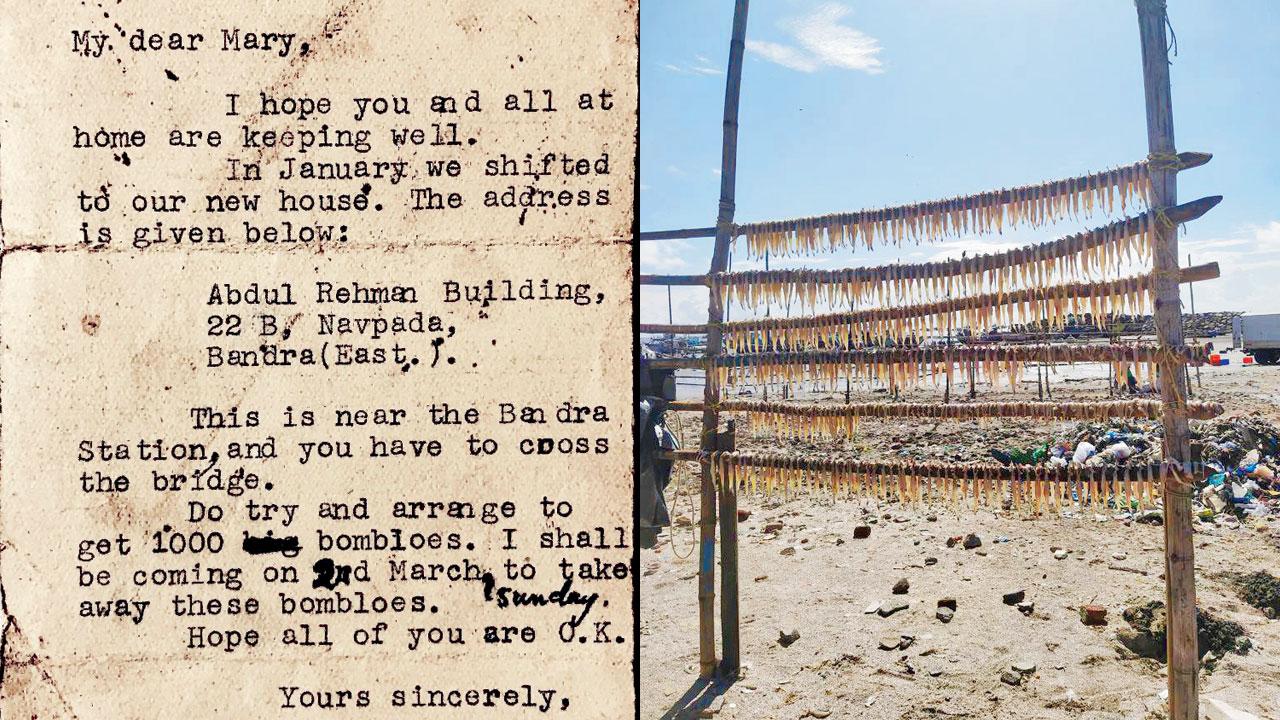 My dear Mary,
I hope you and all at
home are keeping well.
In January we shifted
to our new house. The address
is given below:
Abdul Rehman Building,
22 B, Navpada,
Bandra(East.).
This is near the Bandra
Station,and you have to cross
the bridge.
Do try and arrange to
get 1000 bombloes. I shall
be coming on 2nd March, to take
away these bombloes. Sunday.
Hope all of you are O.K.
Yours sincerely,